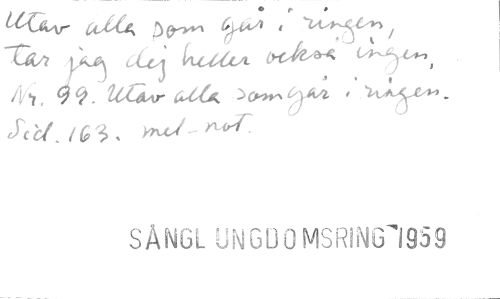 Utav alla som går i ringen,
tar jag dej heller också ingen,
Nr. 99. Utav alla som går i ringen.
Sid. 163. mel-not.
SÅNGL UNGDOMSRING 1959